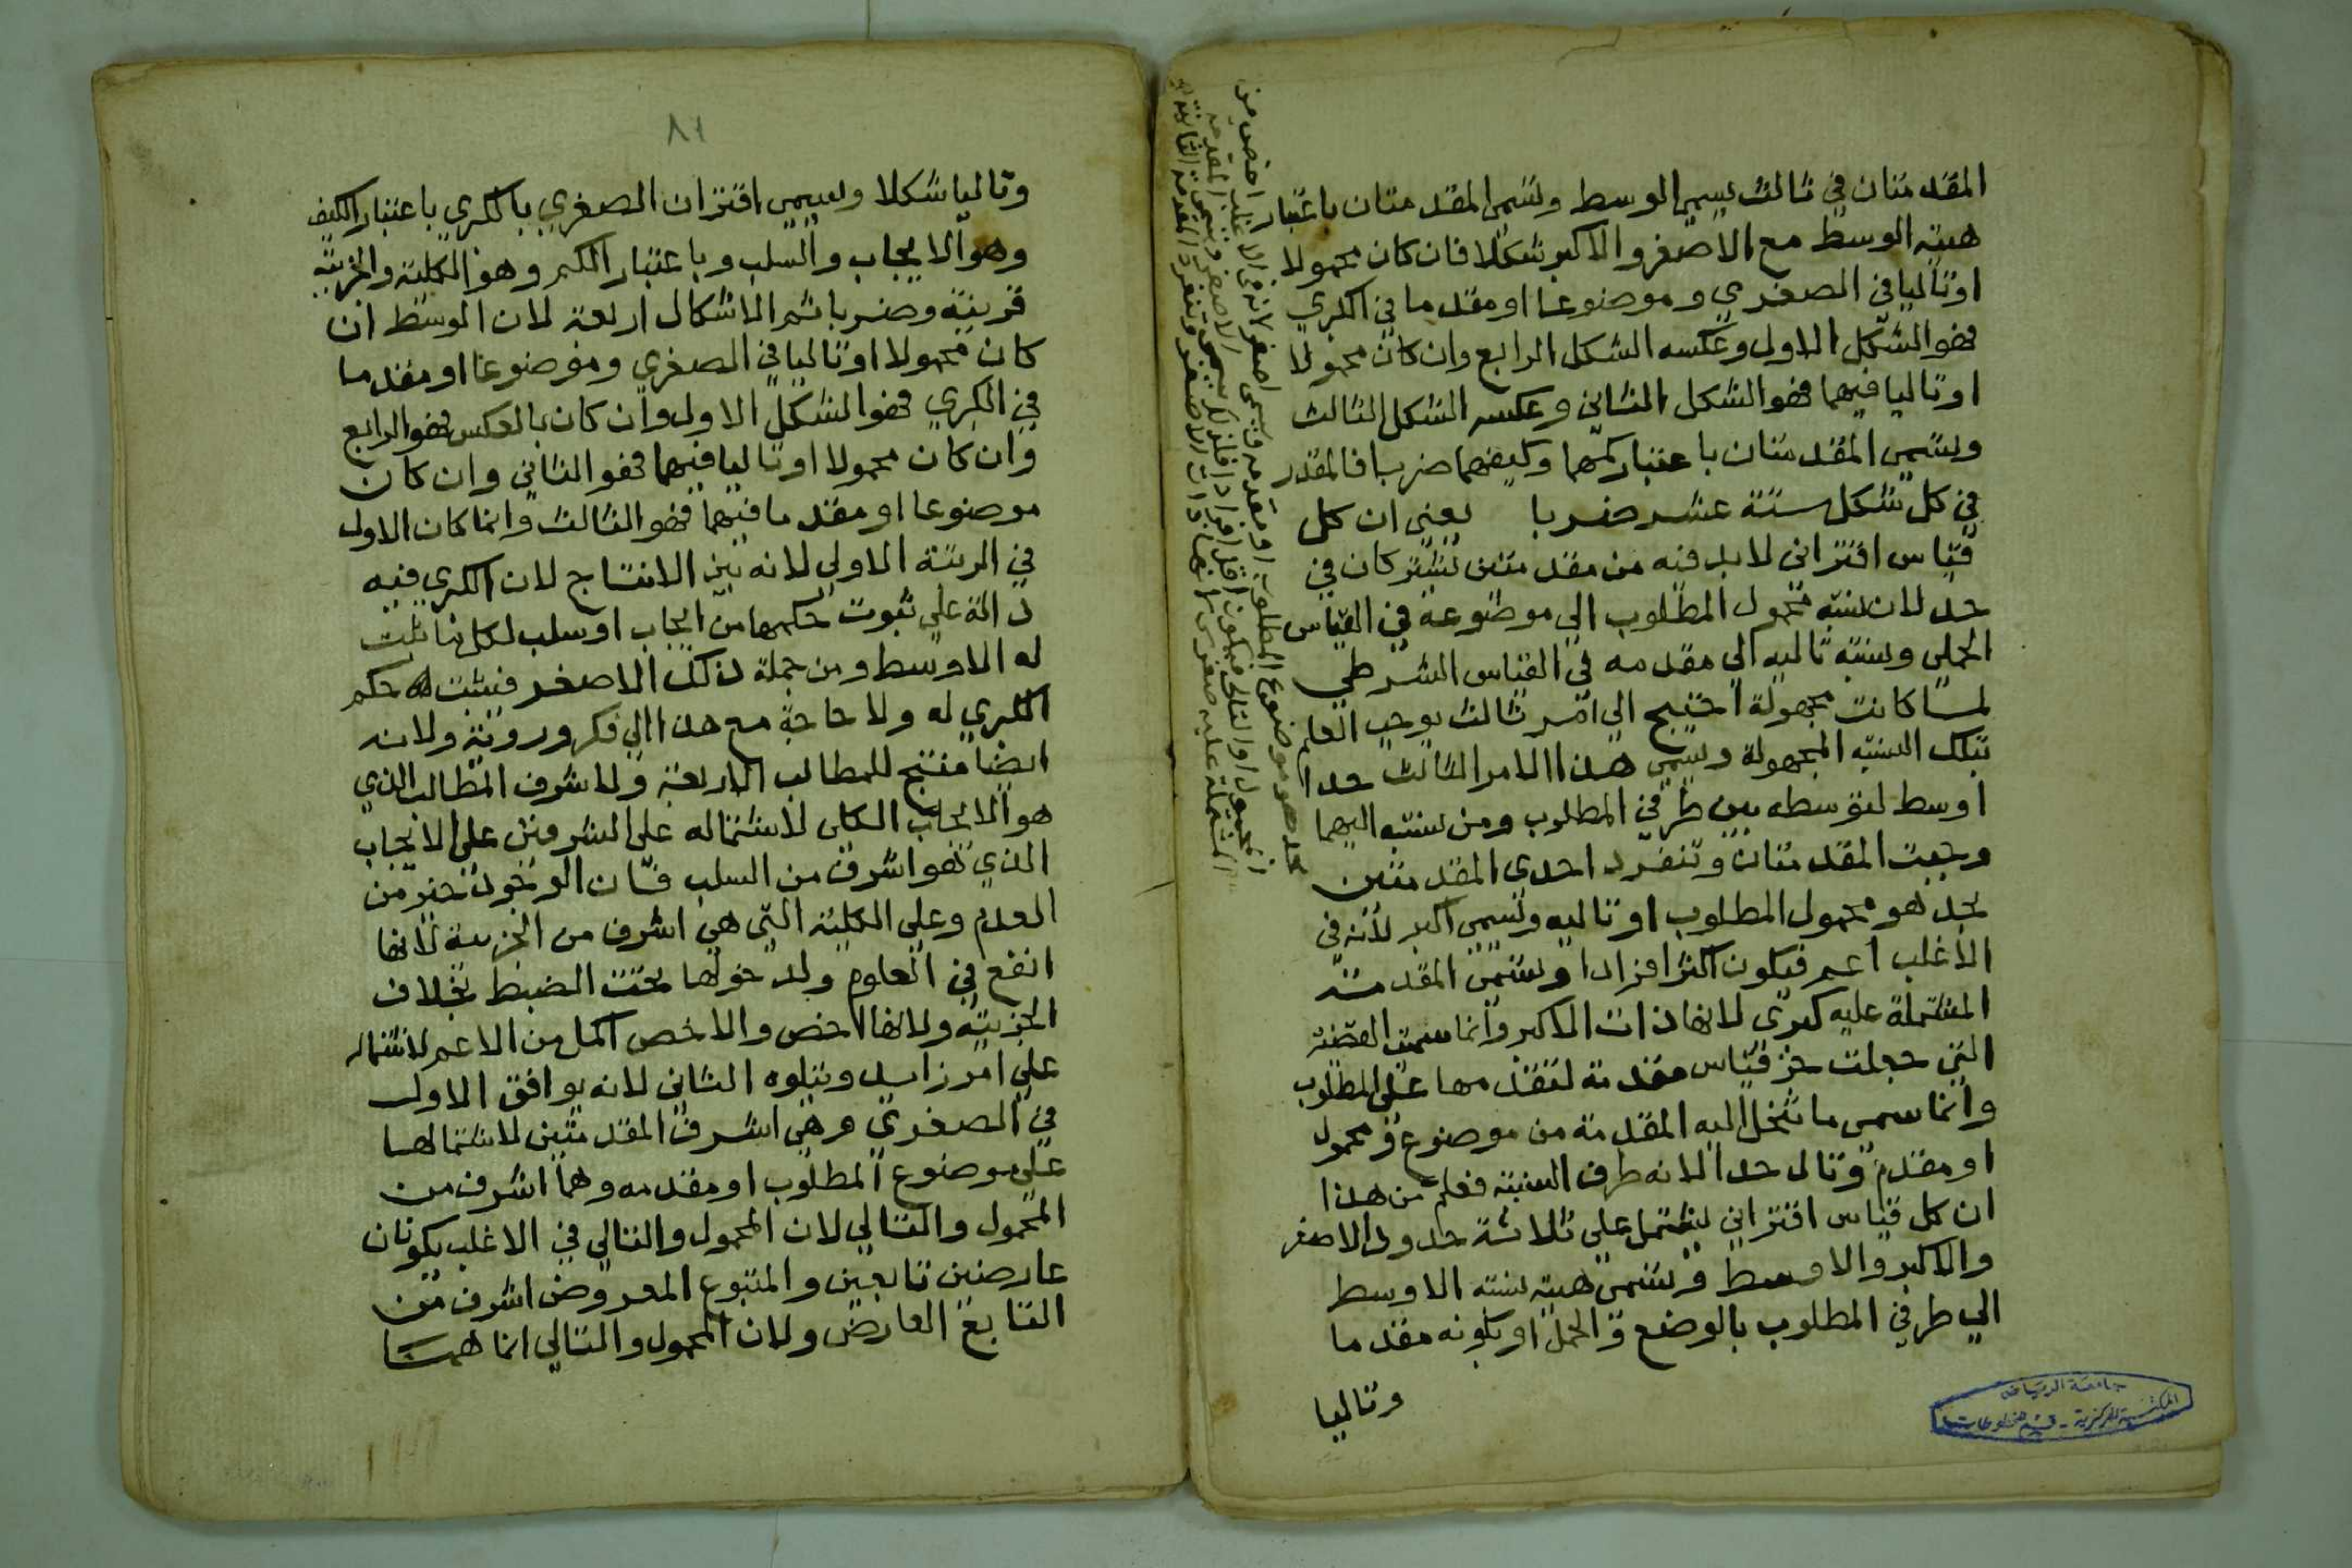 المقدمتان في ثالث يسمى الوسط وتسمى المقدمتان باعتبار
هيئة الوسط مع الاصغر والاكبر شكلا فان كان محمولا
او تاليا في الصغري وموضوعا او مقدما في الكبري
فهو الشكل الاول وعكسه الشكل الرابع وان كان محمولا
او تاليا فيهما فهو الشكل الثاني وعكسه الشكل الثالث
وتسمى المقدمتان باعتبار كمهما وكيفهما ضربا فالمقدر
في كل شكل ستة عشر ضربا يعني ان كل
قياس اقتراني لابد فيه من مقدمتين تشتركان في
حد لان نسبة محمول المطلوب الي موضوعه في القياس
الحملي ونسبة تاليه الي مقدمه في القياس الشرطي
لما كانت مجهولة احتيج الي امر ثالث يوجب العلم
بتلك النسبة المجهولة ويسمى هذا الامر الثالث حدا
اوسط لتوسطه بين طرفي المطلوب ومن نسبته اليهما
وجبت المقدمتان وتنفرد احدي المقدمتين
بحد هو محمول المطلوب او تاليه ويسمى اكبر لانه في
الاغلب اعم فيكون اكثر افرادا وتسمى المقدمة
المشتملة عليه كبرى لانها ذات الاكبر وانما سميت القضية
التي جعلت جز قياس مقدمة لتقدمها على المطلوب
وانما سمى ما تنحل اليه المقدمة من موضوع ومحمول
او مقدم وتال حدا لانه طرف النسبة فعلم من هذا
ان كل قياس اقتراني يشتمل علي ثلاثة حدود الاصغر
والاكبر والاوسط وتسمى هيئة نسبة الاوسط
الي طرفي المطلوب بالوضع والحمل او بكونه مقدما
وتاليا
بحد هو موضوع المطلوب او مقدمه ويسمى اصغر لانه في الاغلب اخص من
المحمول والتالي فيكون اقل افرادا فلذلك سمى الاصغر وتسمى المقدمة
المشتملة عليه صغرى لانها ذات الاصغر وتنفرد المقدمة الثانية
جامعة الرياض
المكتبة المركزية - قسم المخطوطات
٨١
وتاليا شكلا ويسمى اقتران الصغري بالكبري باعتبار الكيف
وهو الايجاب والسلب وباعتبار الكم وهو الكلية والجزيية
قرينة وضربا ثم الاشكال اربعة لان الوسط ان
كان محمولا او تاليا في الصغري وموضوعا او مقدما
في الكبري فهو الشكل الاول وان كان بالعكس فهو الرابع
وان كان محمولا او تاليا فيهما فهو الثاني وان كان
موضوعا او مقدما فيهما فهو الثالث وانما كان الاول
في المرتبة الاولى لانه بين الانتاج لان الكبري فيه
دالة علي ثبوت حكمها من ايجاب او سلب لكل ما ثبت
له الاوسط ومن جملة ذلك الاصغر فيثبت حكم
الكبري له ولا حاجة مع هذا الي فكر وروية ولانه
ايضا منتج للمطالب الاربعة ولاشرف المطالب الذي
هو الايجاب الكلي لاشتماله على الشرفين على الايجاب
الذي هو اشرف من السلب فان الوجود خير من
العدم وعلي الكلية التي هي اشرف من الجزيية لانها
انفع في العلوم ولدخولها تحت الضبط بخلاف
الجزيية ولانها اخص والاخص اكمل من الاعم لاشتماله
علي امر زايد ويتلوه الثاني لانه يوافق الاول
في الصغري وهي اشرف المقدمتين لاشتمالها
علي موضوع المطلوب او مقدمه وهما اشرف من
المحمول والتالي لان المحمول والتالي في الاغلب يكونان
عارضين تابعين والمتبوع المعروض اشرف من
التابع العارض ولان المحمول والتالي انما هما